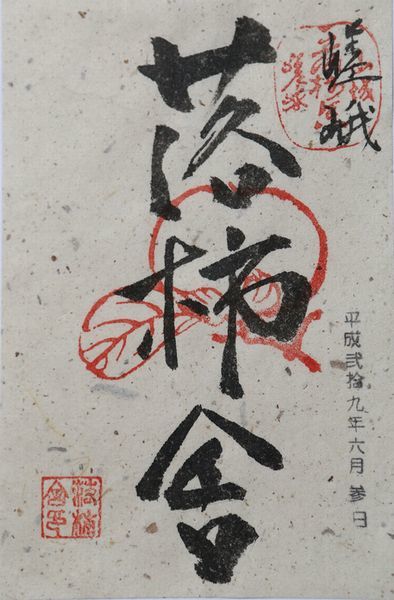 嵯峨
落柿舎
平成弐拾九年六月参日
落柿舎印